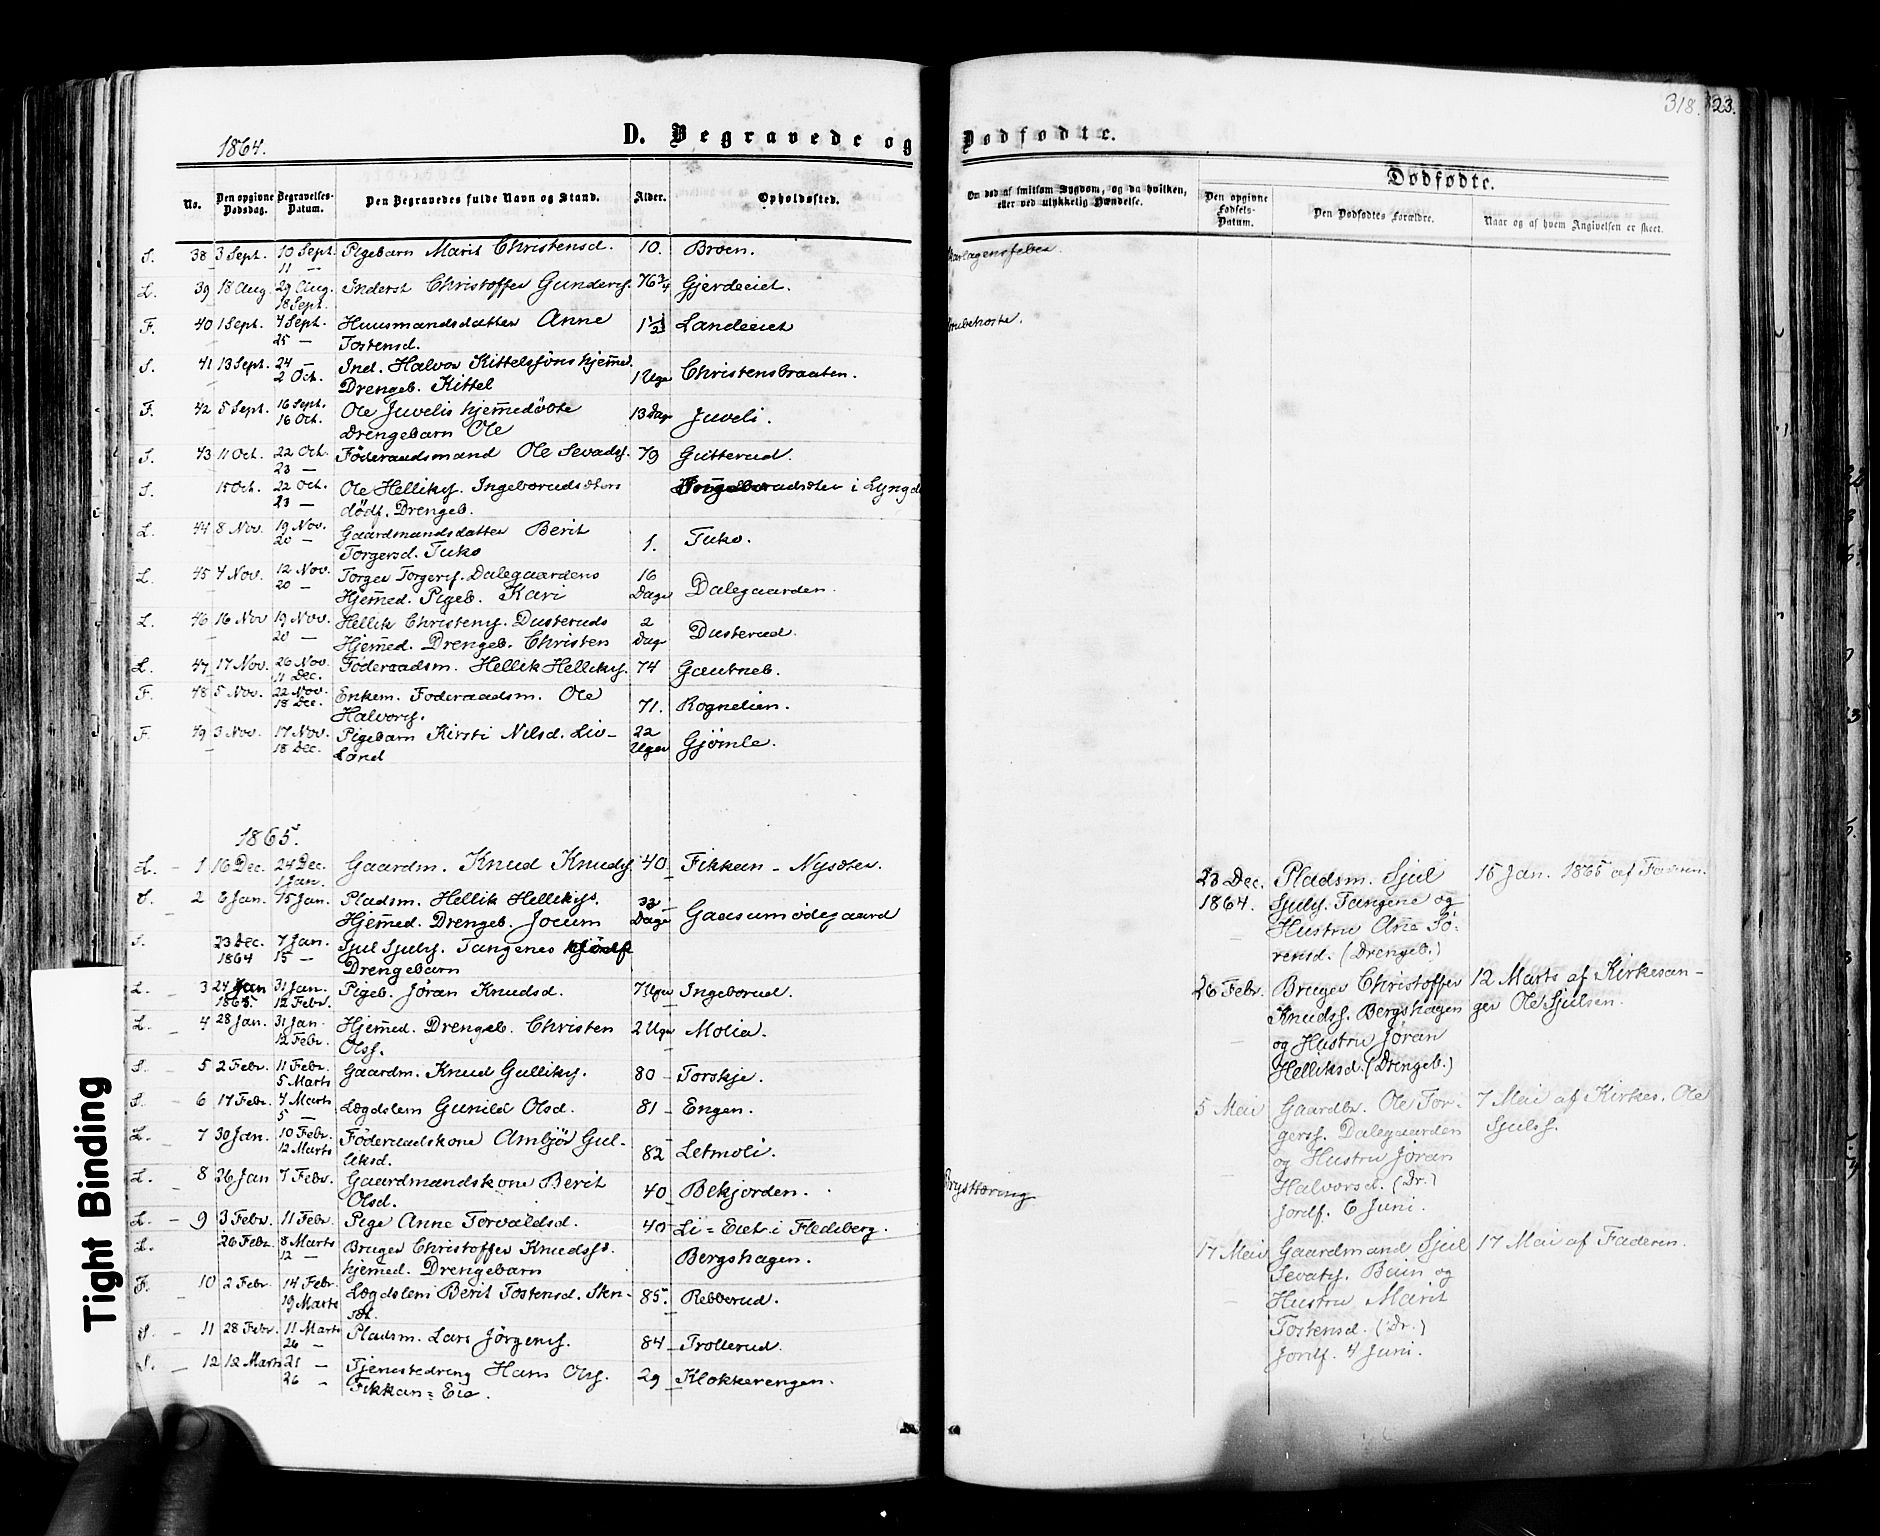 318. 323.
1864.
D. Begravede og Dødfødte.
No. Den opgivne Dødsdag. Begravelses-Datum. Den Begravedes fulde Navn og Stand. Alder. Opholdssted. Om død af smitsom Sygdom, og da hvilken, eller ved ulykkelig Hændelse. Dødfødte.
Den opgivne Fødsels-Datum. Den Dødfødtes Forældre. Naar og af hvem Angivelsen er skeet.
S. 38 3 Sept. 10 Sept. Pigebarn Marit Christensd. 10. Broen.
11 —
L. 39 18 Aug. 29 Aug. Inderst Christoffer Gunders. 76 3/4 Gjerdeeiet.
18 Sept.
F. 40 1 Sept. 4 Sept. Huusmandsdatter Anne 1 1/2 Landeeiet
25 — Tostensd.
S. 41 13 Sept. 24 — Ind. Halvor Kittelsøns hjemed. 1 Uge Christensbraaten.
2 Oct. Drengeb. Kittel
F. 42 5 Sept. 16 Sept. Ole Juvelis hjemedøbte 13 Dage Juveli.
16 Oct. Drengebarn Ole
S. 43 11 Oct. 22 Oct. Føderaadsmand Ole Sevads. 79 Gutterud.
23 —
S. 15 Oct. 22 Oct. Ole Helliks. Ingeborudsøters i Lyngd
23 — dødf. Drengeb.
L. 44 8 Nov. 19 Nov. Gaardmandsdatter Berit 1. Tuko.
20 — Torgersd. Tuko
L. 45 4 Nov. 12 Nov. Torger Torgers. Dalegaardens 16 Dage Dalegaarden.
20 — Hjemed. Pigeb. Kari
L. 46 16 Nov 19 Nov. Hellik Christens. Dusteruds 2 Dage Dusterud.
20 — Hjemed. Drengeb. Christen
L. 47 17 Nov. 26 Nov. Føderaadsm. Hellik Helliks. 74 Gautneb.
11 Dec.
F. 48 5 Nov. 22 Nov. Enkem. Føderaadsm. Ole 71. Rognelien.
18 Dec. Halvors.
F. 49 3 Nov. 17 Nov. Pigebarn Kirsti Nilsd. Liv- 22 Uger Gjømle.
18 Dec. land
1865.
L. — 1 16 Dec. 24 Dec. Gaardm. Knud Knuds. 40 Fikkan - Nysæter.
1 Jan.
S. 2 6 Jan. 15 Jan. Pladsm. Hellik Helliks. Dage Gaasumødegaard
Hjemed. Drengeb. Jocum
S. 23 Dec. 7 Jan. Sjul Sjuls. Tangenes
1864 15 — Drengebarn
L. — 3 24 Jan 31 Jan. Pigeb. Jøran Knudsd. 7 Uger Ingeborud.
1865. 12 Febr.
L. — 4 28 Jan. 31 Jan. Hjemed. Drengeb. Christen 2 Uger Molia.
12 Febr. Olss.
S. 5 2 Febr. 11 Febr. Gaardm. Knud Gulliks. 80 Torskje.
5 Marts
S. — 6 17 Febr. 4 Marts Lægdslem Gunild Olsd. 81 Engen.
5 —
L. 7 30 Jan. 10 Febr. Føderaadskone Ambjør Gul- 82 Letmoli.
12 Marts liksd.
L. — 8 26 Jan 7 Febr. Gaardmandskone Berit 40 Bekjorden. Brysttæring
Olsd.
L. — 9 3 Febr. 11 Febr. Pige Anne Torvaldsd. 40 Li = Eiet i Flesberg.
L. 26 Febr. 8 Marts Bruger Christoffer Knudss. Bergshagen.
12 — hjemed. Drengebarn
F. 10 2 Febr. 14 Febr. Lægdslem Berit Tostensd. 85. Rebberud.
19 Marts
S. — 11 28 Febr. 11 Marts Pladsm. Lars Jørgens. 84 Trollerud.
26 —
S. — 12 12 Marts 21 — Tjenestedreng Hans Olss. 29 Klokkerengen.
26 — Fikkan = Eie.
23 Dec. Pladsm. Sjul 15 Jan. 1865 af Faderen.
1864. Sjuls. Tangene og
Hustru Ane Sø-
rensd. (Drengeb.)
26 Febr. Bruger Christoffer 12 Marts af Kirkesan-
Knudss. Bergshagen ger Ole Sjulsen.
og Hustru Jøran
Helliksd. (Drengeb.)
5 Mai Gaardbr. Ole Tor- 7 Mai af Kirkes. Ole
gerss. Dalegaarden Sjulss.
og Hustru Jøran
Halvorsd. (Dr.)
Jordf. 6 Juni.
17 Mai Gaardmand Sjul 17 Mai af Faderen.
Sevats. Buin og
Hustru Marit
Tostensd. (Dr.)
Jordf. 4 Juni.
Tight Binding